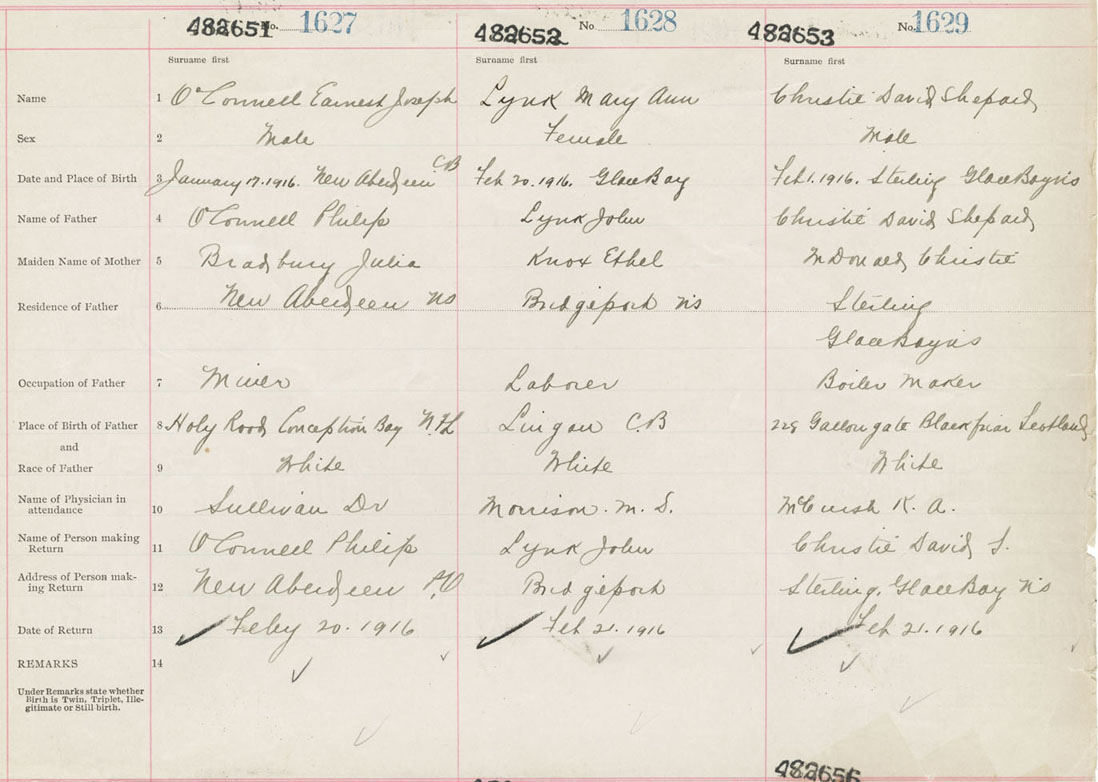 482651 No. 1627 482652 No 1628 482653 No. 1629
Surname first Surname first Surname first
Name 1 O'Connell Earnest Joseph Lynk Mary Ann Christie David Shepard
Sex 2 Male Female Male
Date and Place of Birth 3 January 17. 1916. New Aberdeen CB Feb 20. 1916. Glace Bay Feb 1. 1916. Sterling Glace Bay NS
Name of Father 4 O'Connell Philip Lynk John Christie David Shepard
Maiden Name of Mother 5 Bradbury Julia Knox Ethel McDonald Christie
Residence of Father 6 New Aberdeen NS Bridgeport NS Sterling
Glace Bay NS
Occupation of Father 7 Miner Laborer Boiler Maker
Place of Birth of Father 8 Holy Rood Conception Bay N.F.L Lingan C.B 228 Gallowgate Blackfriar Scotland
and
Race of Father 9 White White White
Name of Physician in
attendance 10 Sullivan Dr Morrison. M. S. McCuish K. A.
Name of Person making
Return 11 O'Connell Philip Lynk John Christie David S.
Address of Person mak-
ing Return 12 New Aberdeen P.O Bridgeport Sterling. Glace Bay NS
Date of Return 13 Feby 20. 1916 Feb 21. 1916 Feb 21. 1916
REMARKS 14
Under Remarks state whether
Birth is Twin, Triplet, Ille-
gitimate or Still-birth.
482656